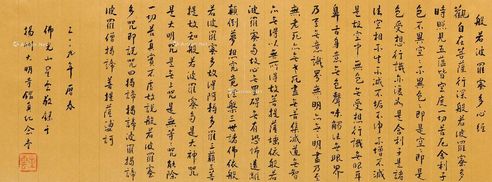 般若波羅蜜多心經
觀自在菩薩行深般若波羅蜜多
時照見五蘊皆空度一切苦厄舍利子
色不異空空不異色色即是空空即是
色受想行識亦復如是舍利子是諸
法空相不生不滅不垢不淨不增不減
是故空中無色無受想行識無眼耳
鼻舌身意無色聲味觸法無眼界
乃至無意識界無無明亦無無明盡乃至
無老死亦無老死盡無苦集滅道無智
亦無得以無所得故菩提薩埵依般若
波羅蜜多故心無罣礙無有恐怖遠離
顛倒夢想究竟涅槃三世諸佛依般
若波羅蜜多故得阿耨多羅三藐三菩
提故知般若波羅蜜多是大神咒
是大明咒是無上咒是無等咒能除
一切苦真實不虛故說般若波羅蜜
多咒即說咒曰揭諦揭諦波羅揭諦
波羅僧揭諦菩提薩婆訶
佛光山星雲敬
揚州大明寺鑑真紀念